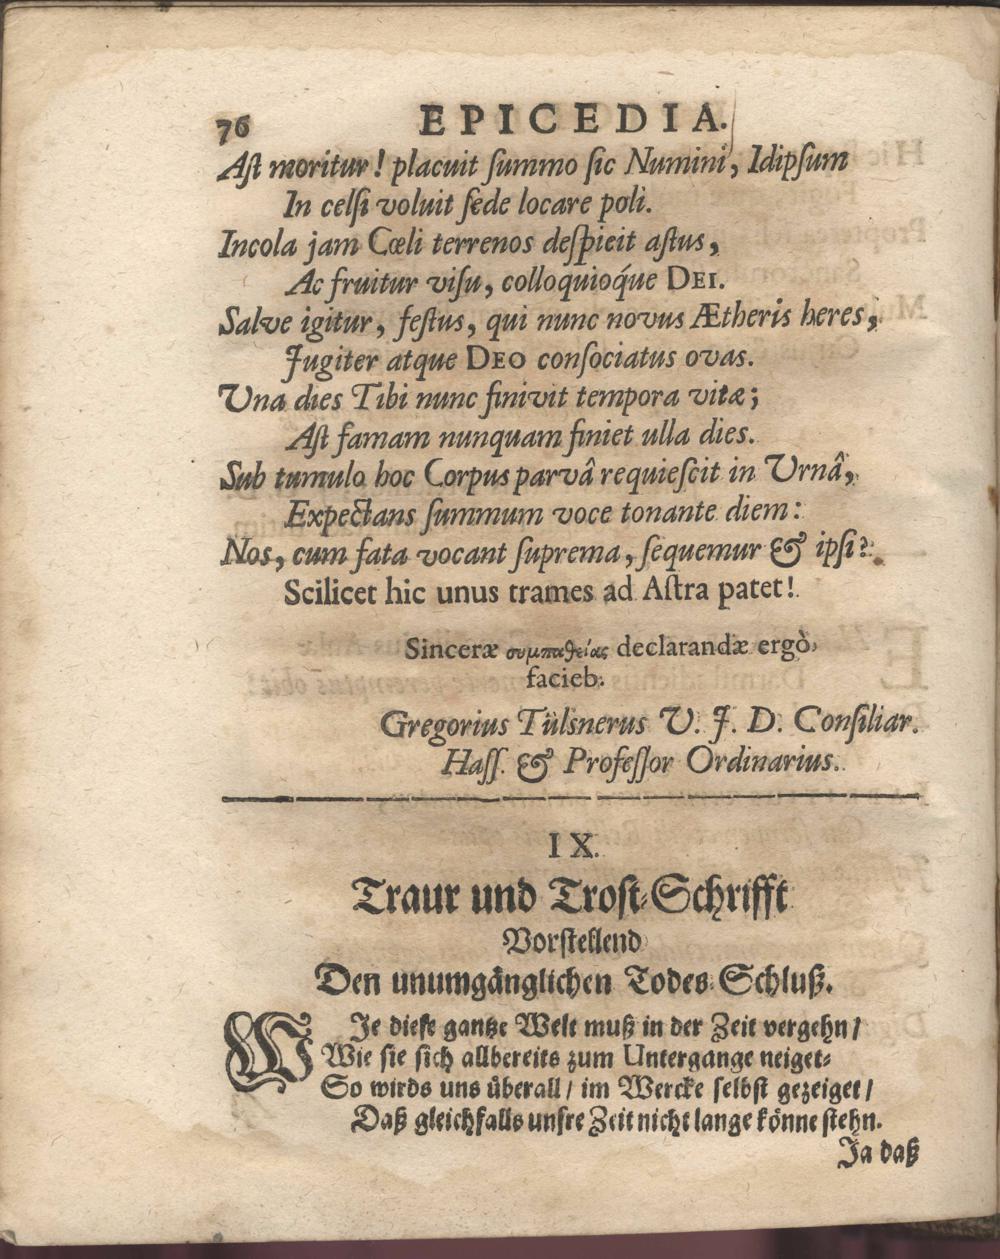 76 EPICEDIA.
Aſt moritur! placuit ſummo ſic Numini, Idipſum
In celſi voluit ſede locare poli.
Incola jam Cœli terrenos deſpicit aſtus,
Ac fruitur viſu, colloquioq́ue DEI.
Salve igitur, feſtus, qui nunc novus Ætheris heres,
Jugiter atque DEO conſociatus ovas.
Una dies Tibi nunc finivit tempora vitæ;
Aſt famam nunquam finiet ulla dies.
Sub tumulo hoc Corpus parvâ requieſcit in Urnâ,
Expectans ſummum voce tonante diem:
Nos, cum fata vocant ſuprema, ſequemur & ipſi?
Scilicet hic unus trames ad Aſtra patet!
Sinceræ συμπαθείας declarandæ ergò,
facieb.
Gregorius Tülsnerus V. J. D. Conſiliar.
Haſſ. & Profeſſor Ordinarius.
IX.
Traur und Troſt-Schrifft
Vorſtellend
Den unumgänglichen Todes-Schluß.
WJe dieſe gantze Welt muß in der Zeit vergehn/
Wie ſie ſich allbereits zum Untergange neiget-
So wirds uns überall/ im Wercke ſelbſt gezeiget/
Daß gleichfalls unſre Zeit nicht lange könne ſtehn.
Ja daß